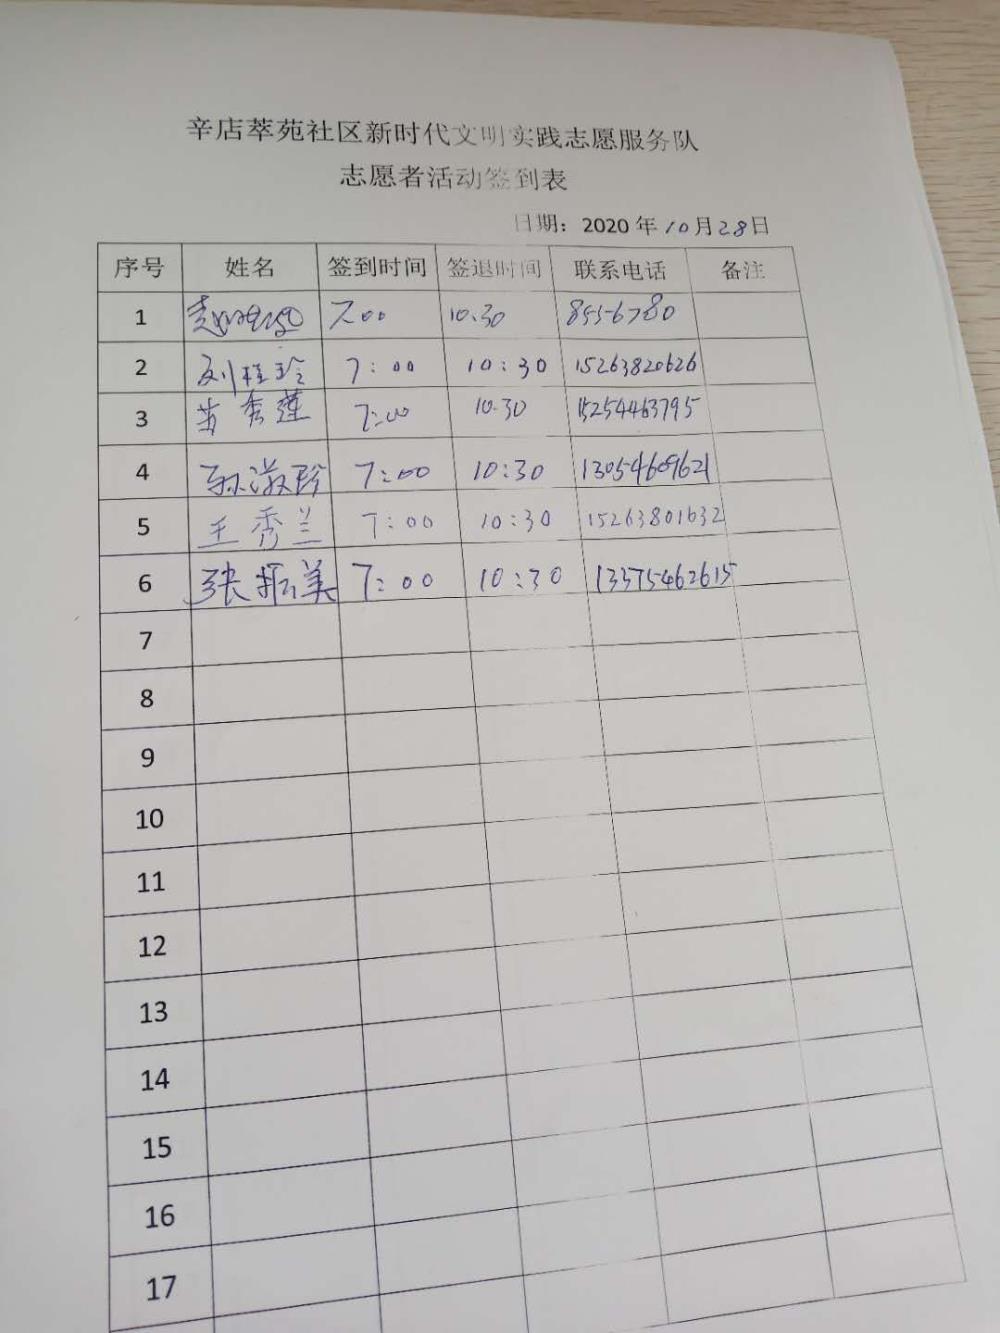 辛店萃苑社区新时代文明实践志愿服务队
志愿者活动签到表
日期：2020年10月28日
序号 姓名 签到时间 签退时间 联系电话 备注
1 7:00 10:30 8556780
2 刘桂玲 7:00 10:30 15263820626
3 秀莲 7:00 10:30 15254463795
4 孙淑珍 7:00 10:30 13054609621
5 王秀兰 7:00 10:30 15263801632
6 张振美 7:00 10:30 13375462615
7
8
9
10
11
12
13
14
15
16
17